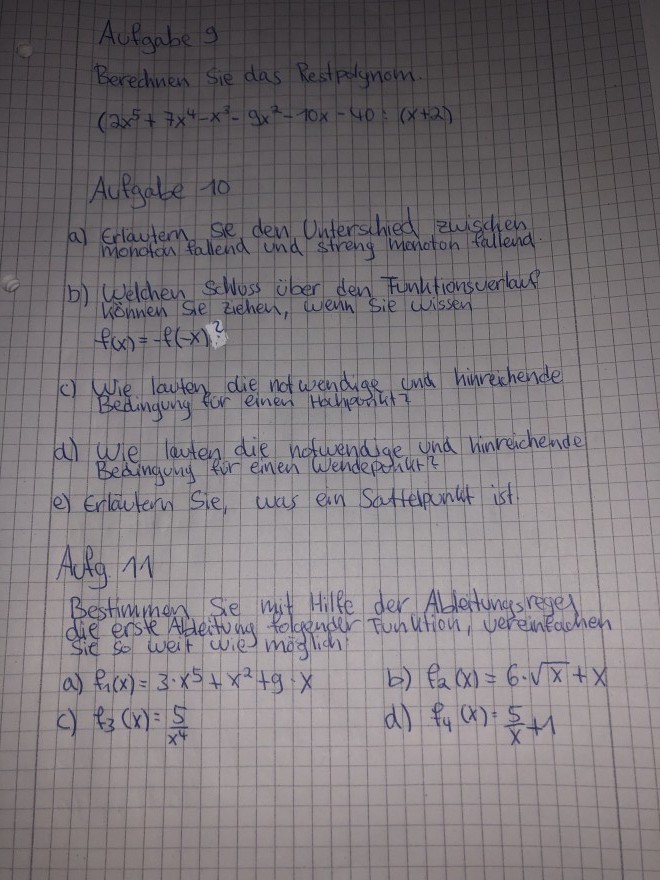 Aufgabe 9
Berechnen Sie das Restpolynom.
(2x⁵ + 7x⁴ - x³ - 9x² - 10x - 40 : (x+2)
Aufgabe 10
a) Erläutern Sie den Unterschied zwischen
monoton fallend und streng monoton fallend.
b) Welchen Schluss über den Funktionsverlauf
können Sie ziehen, wenn Sie wissen
f(x) = -f(-x)?
c) Wie lauten die notwendige und hinreichende
Bedingung für einen Hochpunkt?
d) Wie lauten die notwendige und hinreichende
Bedingung für einen Wendepunkt?
e) Erläutern Sie, was ein Sattelpunkt ist.
Aufg. 11
Bestimmen Sie mit Hilfe der Ableitungsregel
die erste Ableitung folgender Funktion, vereinfachen
Sie so weit wie möglich:
a) f₁(x) = 3·x⁵ + x² + 9·x b) f₂(x) = 6·√x + x
c) f₃(x) = 5/x⁴ d) f₄(x) = 5/x + 1